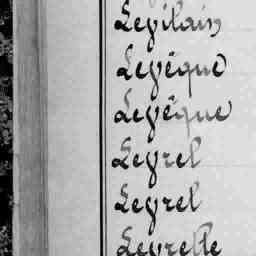 Levilain
Levêque
Levêque
Leyrel
Leyrel
Leyrette